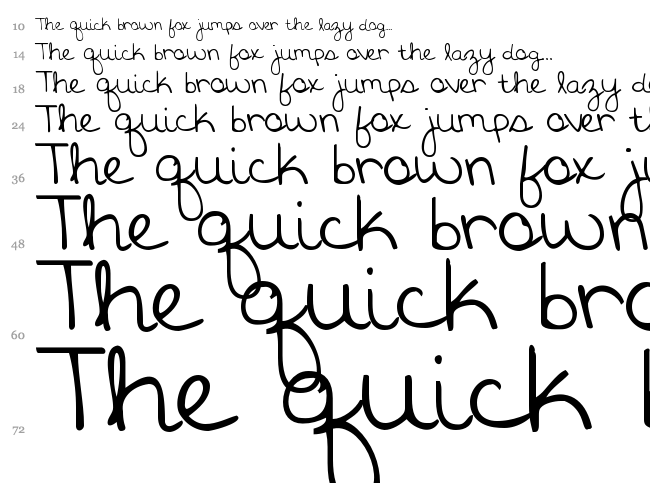 10 The quick brown fox jumps over the lazy dog...
14 The quick brown fox jumps over the lazy dog...
18 The quick brown fox jumps over the lazy d
24 The quick brown fox jumps over t
36 The quick brown fox j
48 The quick brown
60 The quick bro
72 The quick